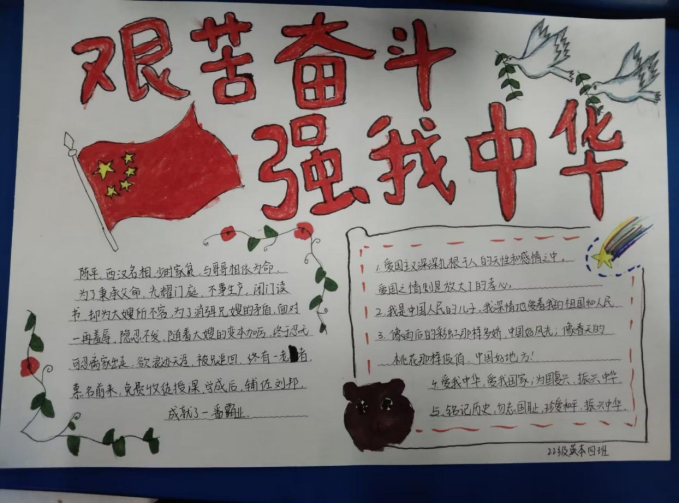 艰苦奋斗
强我中华
陈平,西汉名相,少时家贫,与哥哥相依为命,
为了秉承父命,光耀门庭,不事生产,闭门读
书,却为大嫂所不容,为了消弭兄嫂的矛盾,面对
一再羞辱,隐忍不发,随着大嫂的变本加厉,终于忍无
可忍离家出走,欲浪迹天涯,被兄追回,终有一老者,
慕名前来,免费收徒授课,学成后,辅佐刘邦,
成就了一番霸业.
1.爱国主义深深扎根于人的天性和感情之中,
爱国之情则是放大了的孝心.
2.我是中国人民的儿子,我深情地爱着我的祖国和人民
3.像雨后的彩虹那样多娇,中国好风光;像春天的
桃花那样 ,中国好地方!
4.爱我中华,爱我国家,为国复兴,振兴中华
5.铭记历史,勿忘国耻,珍爱和平,振兴中华.
22级英本四班